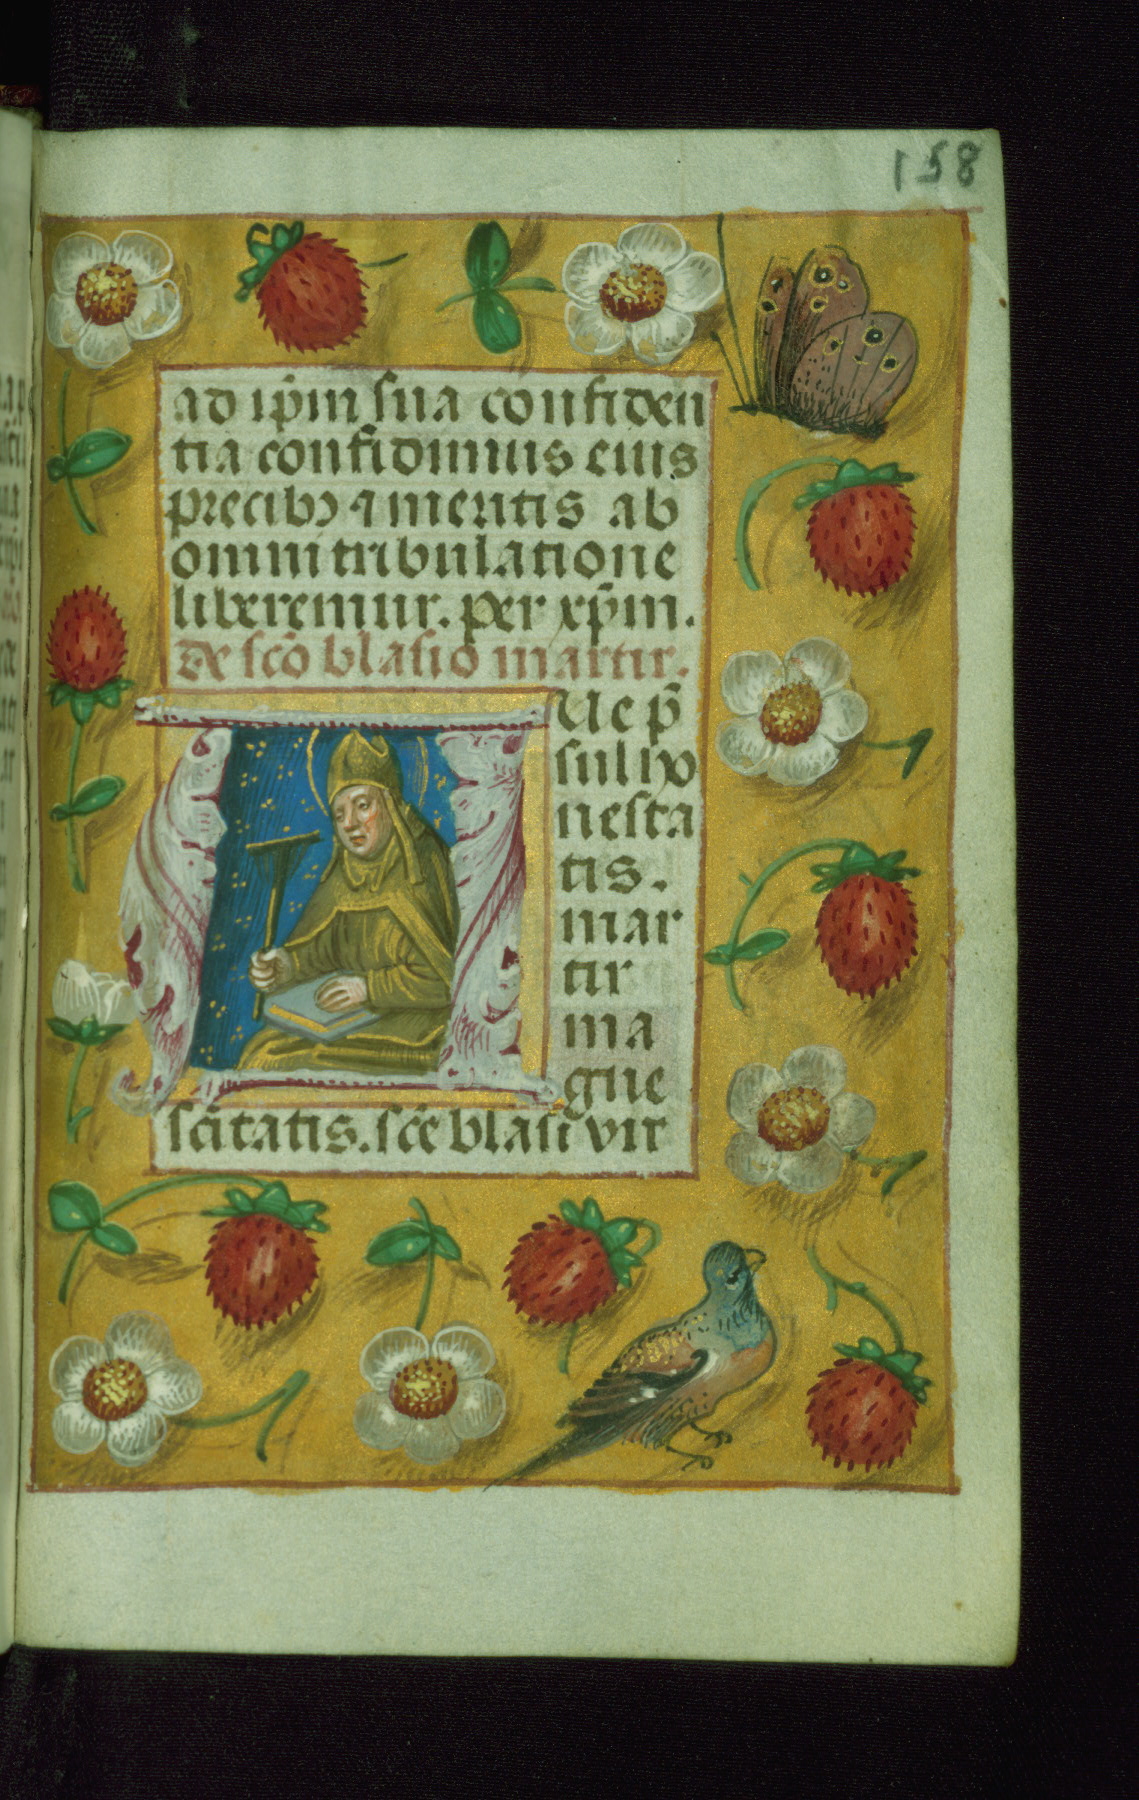 158
ad ip̄m sua confiden
tia confidimus eius
precibꝫ ⁊ meritis ab
omni tribulatione
liberemur. per xp̄m.
de sc̄o blasio martir.
Aue p̄
sul ho
nesta
tis.
mar
tir
ma
gne
sc̄itatis. sc̄e blasi vir